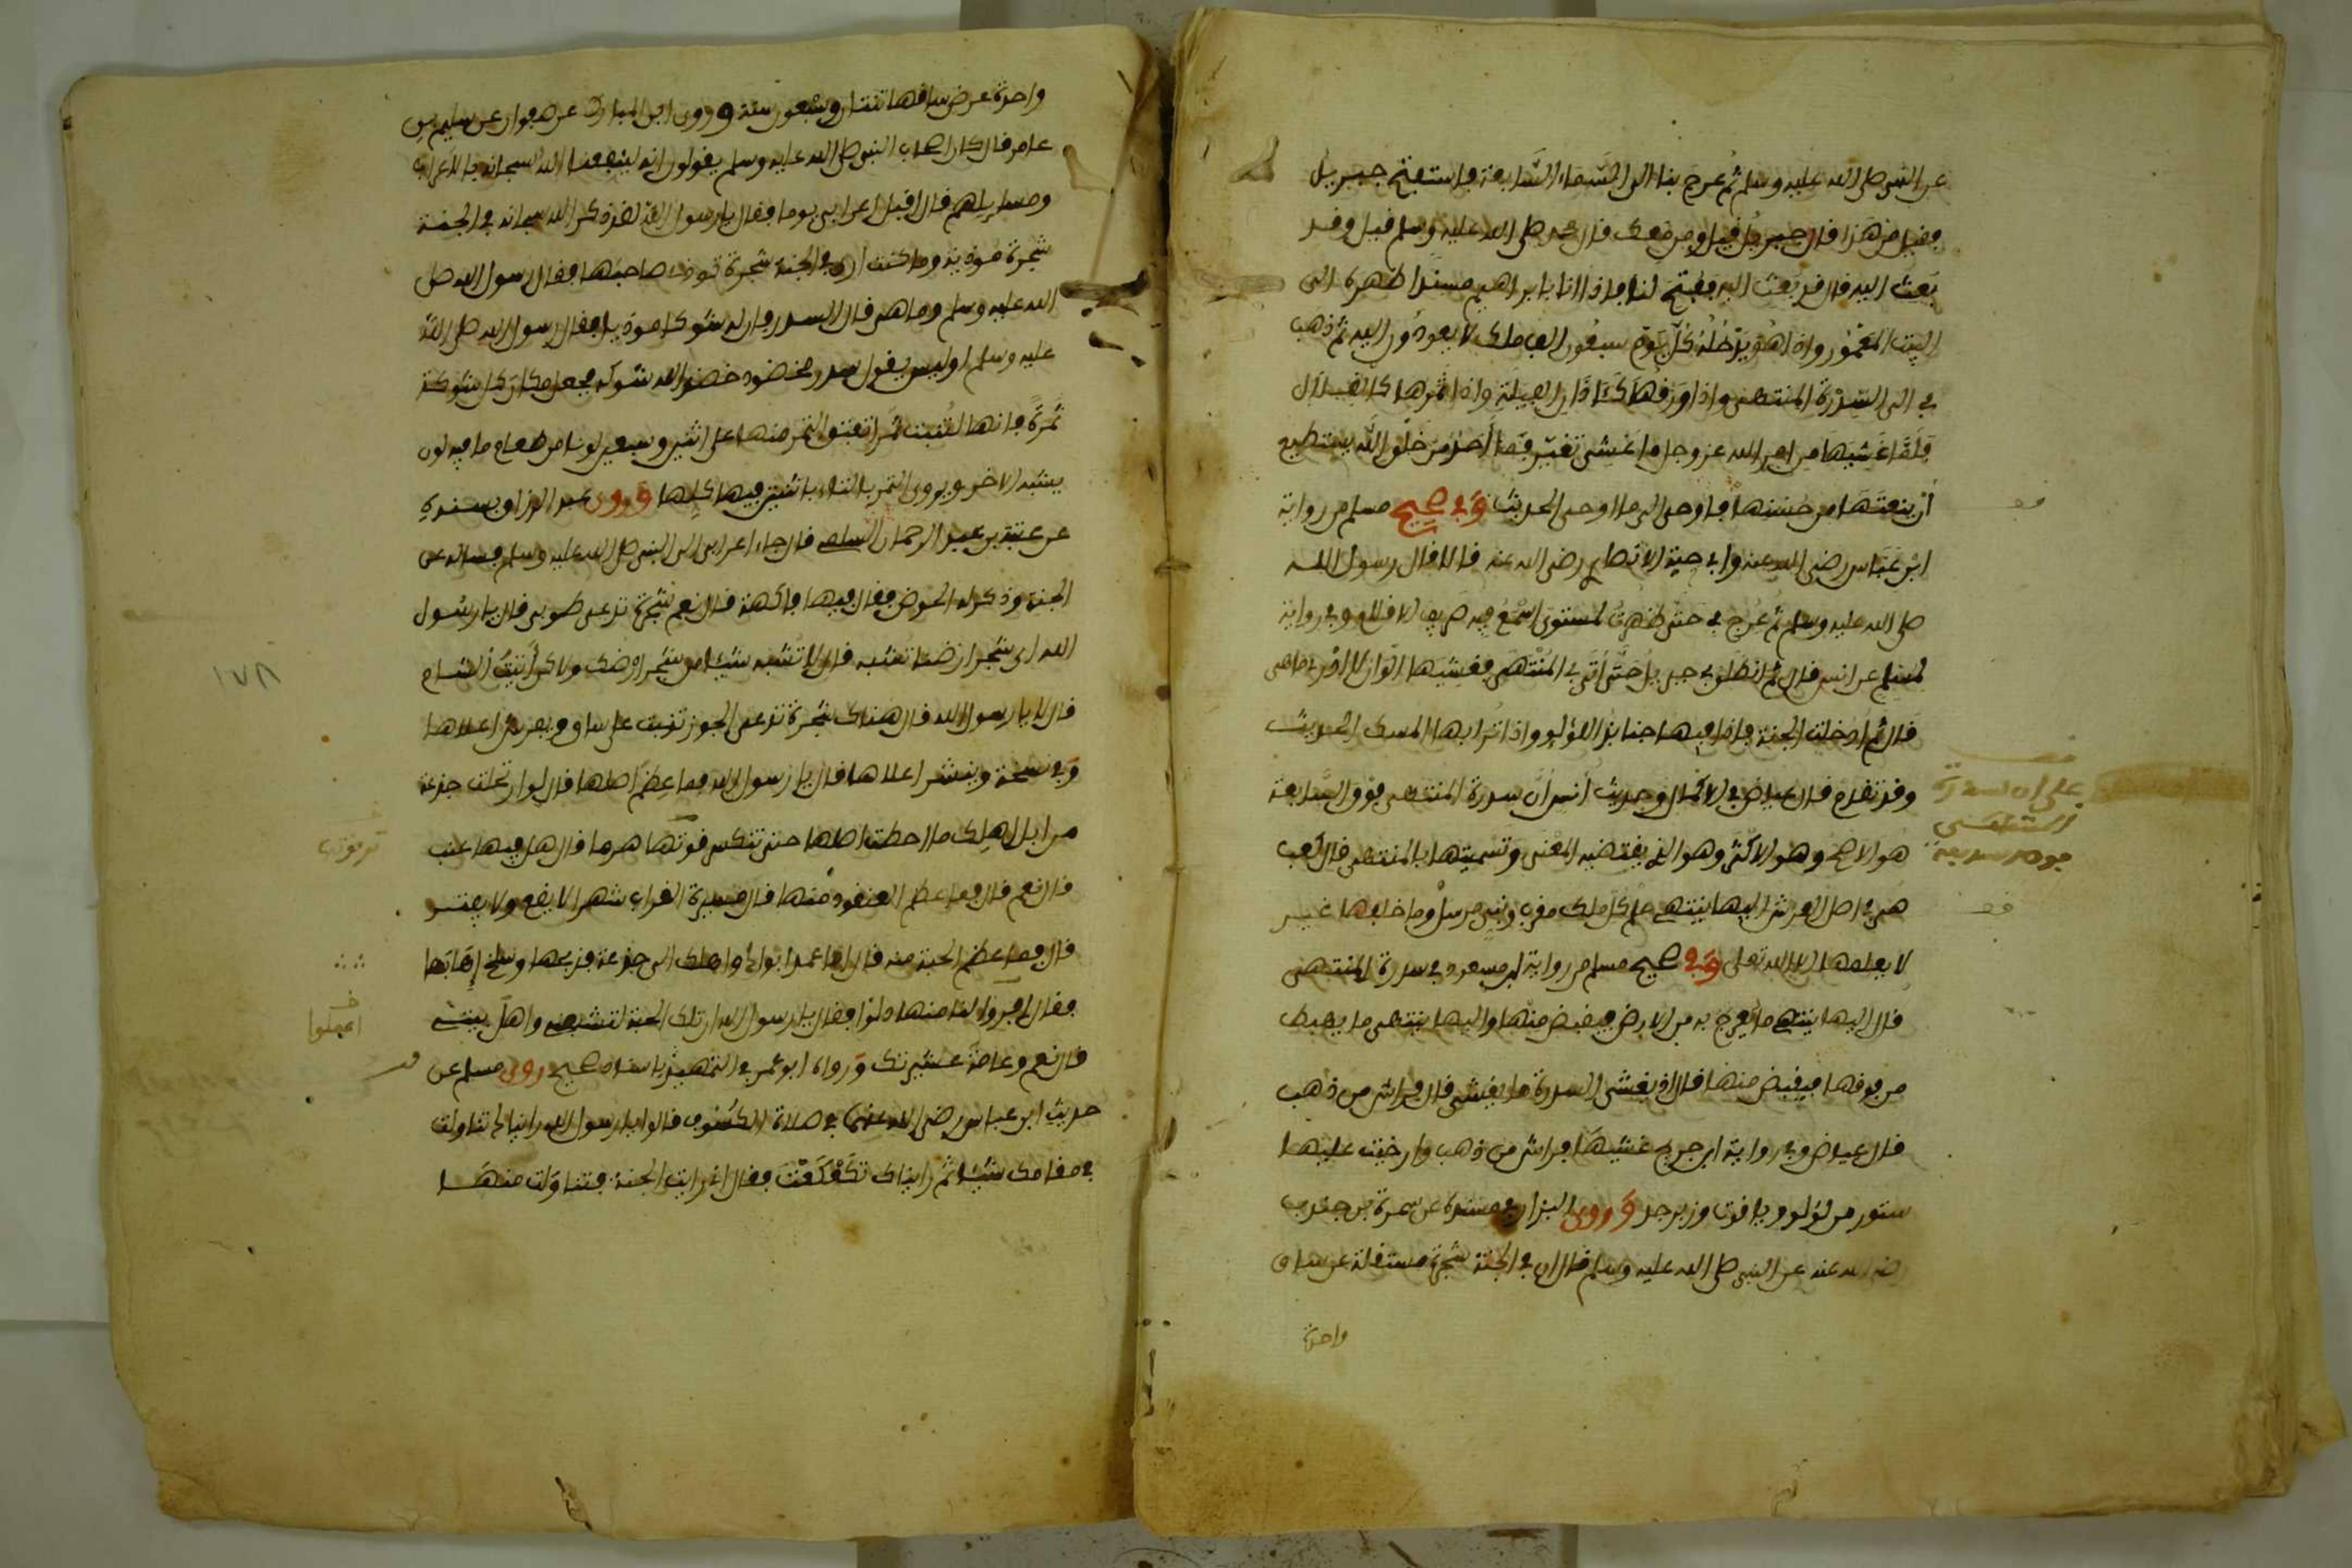 عن النبي صلى الله عليه وسلم ثم عرج بنا الى السماء السابعة فاستفتح جبريل
فقيل من هذا قال جبريل قيل ومن معك قال محمد صلى الله عليه وسلم قيل وقد
بعث اليه قال قد بعث اليه ففتح لنا فاذا انا بابراهيم مسندا ظهره الى
البيت المعمور واذا هو يدخله كل يوم سبعون الف ملك لا يعودون اليه ثم ذهب
بي الى السدرة المنتهى واذا ورقها كئاذان الفيلة واذا ثمرها كالقلال
فلما غشيها من امر الله عز وجل ما غشي تغيرت فما احد من خلق الله يستطيع
ان ينعتها من حسنها فاوحى الي ما اوحى الحديث وفي صحيح مسلم من رواية
ابن عباس رضي الله عنه وابي حبة الانصاري رضي الله عنه قالا قال رسول الله
صلى الله عليه وسلم ثم عرج بي حتى ظهرت لمستوى اسمع فيه صريف الاقلام وفي رواية
لمسلم عن انس قال ثم انطلق بي جبريل حتى اتى بي المنتهى فغشيها الوان لا ادري ما هي
قال ثم ادخلت الجنة فاذا فيها جنابذ اللؤلؤ واذا ترابها المسك الحديث
وقد تقدم قال عياض في الاكمال وحديث انس ان سدرة المنتهى فوق السابعة
هو الاصح وهو الاكثر وهو الذي يقتضيه المعنى وتسميتها بالمنتهى قال كعب
هي في اصل العرش اليها ينتهي علم كل ملك مقرب ونبي مرسل وما خلفها غيب
لا يعلمها الا الله تعلى وفي صحيح مسلم من رواية ابن مسعود في سدرة المنتهى
قال اليها ينتهي ما يعرج به من الارض فيقبض منها واليها ينتهي ما يهبط
من فوقها فيقبض منها قال اذ يغشى السدرة ما يغشى قال فراش من ذهب
قال عياض وفي رواية ابن جريج غشيها فراش من ذهب وارخيت عليها
ستور من لؤلؤ وياقوت وزبرجد وروى البزار في مسنده عن سمرة بن جندب
رضي الله عنه عن النبي صلى الله عليه وسلم قال ان في الجنة شجرة مستقلة عن ساق
واحدة
واحدة عرض ساقها ثنتان وسبعون سنة وروى ابن المبارك عن صفوان عن سليم بن
عامر قال كان اصحاب النبي صلى الله عليه وسلم يقولون انه لينفعنا الله سبحانه بالاعراب
ومسايلهم قال اقبل اعرابي يوما فقال يا رسول الله لقد ذكر الله سبحانه في الجنة
شجرة موذية وما كنت ارى في الجنة شجرة توذي صاحبها فقال رسول الله صلى
الله عليه وسلم وما هي قال السدر فان له شوكا موذيا فقال رسول الله صلى الله
عليه وسلم اوليس يقول سدر مخضود خضد الله شوكه فجعل مكان كل شوكة
ثمرة فانها لتنبت ثمرا تفتق الثمر منها على اثنين وسبعين لونا من طعام ما فيه لون
يشبه الاخر ويروى التمر بالتاء باثنتين فيها كلها وروى عبد الرزاق بسنده
عن عتبة بن عبد الرحمان السلمي قال جاء اعرابي الى النبي صلى الله عليه وسلم فساله عن
الجنة وذكر له الحوض فقال فيها فاكهة قال نعم شجرة تدعى طوبى قال يا رسول
الله اي شجر ارضنا تشبه قال لا تشبه شيئا من شجر ارضك ولاكن أتيت الشام
قال لا يا رسول الله قال هناك شجرة تدعى الجوز تنبت على ساق ويفرش اعلاها
وفي نسخة وينشر اعلاها قال يا رسول الله فما عظم اصلها قال لو ارتحلت جذعة
من ابل اهلك ما احطت اصلها حتى تنكسر قوتها هرما قال هل فيها عنب
قال نعم قال فما عظم العنقود منها قال مسيرة الغراب شهرا لا يقع ولا يفتر
قال فما عظم الحبة منه قال اما عمد ابوك واهلك الى جذعة فذبحها وسلخ اهابها
فقال افروا لنا منها دلوا فقال يا رسول الله ان تلك الحبة لتشبعني واهل بيتي
قال نعم وعامة عشيرتك ورواه ابو عمر في التمهيد باسناد صحيح روى مسلم عن
حديث ابن عباس رضي الله عنهما في صلاة الكسوف قالوا يا رسول الله رايناك تناولت
في مقامك شيئا ثم رايناك تكفكفت فقال اني رايت الجنة فتناولت منها
١٧٨